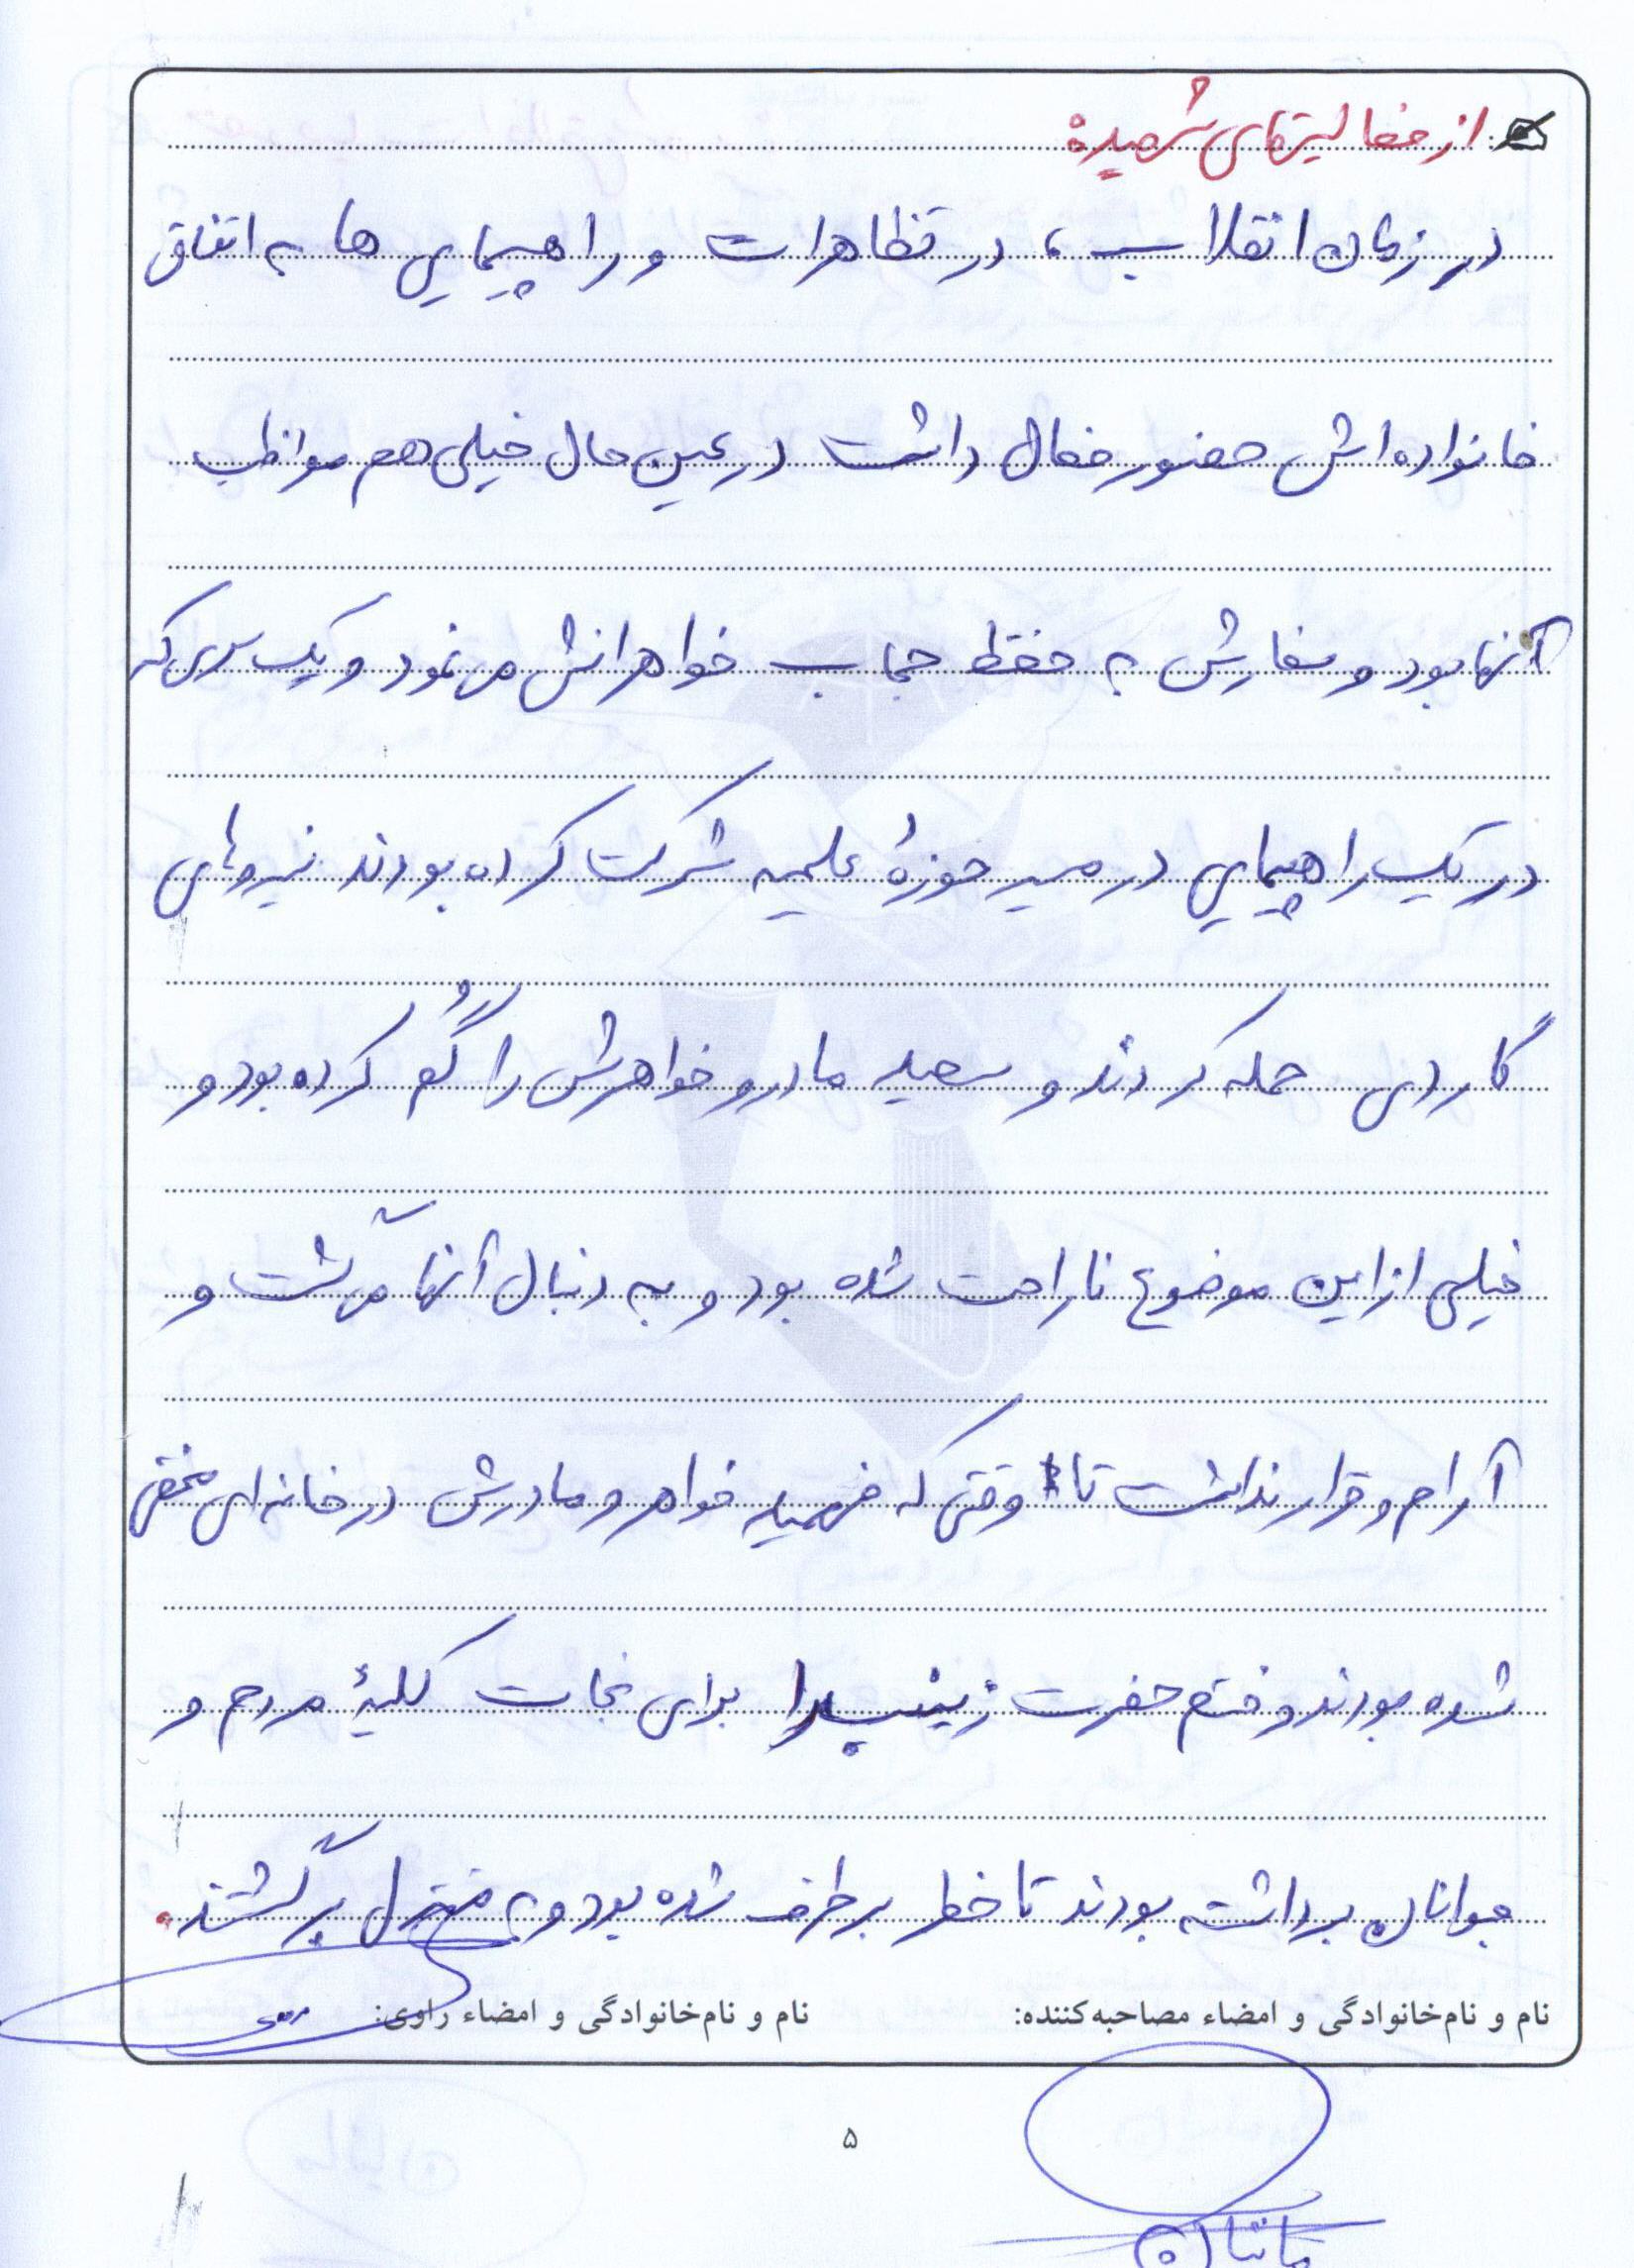 از فعالیتهای شهید:
در زمان انقلاب، در تظاهرات و راهپیمایی ها به اتفاق
خانواده‌اش حضور فعال داشت در عین حال خیلی هم مواظب
آنها بود و سفارش به حفظ حجاب خواهرانش می نمود و یک سری که
در یک راهپیمایی در مسیر حوزهٔ علمیه شرکت کرده بودند نیروهای
گاردی حمله کردند و سعید مادر و خواهرش را گُم کرده بود و
خیلی از این موضوع ناراحت شده بود و به دنبال آنها می گشت و
آرام و قرار نداشت تا وقتی که فهمید خواهر و مادرش در خانه ای مخفی
شده بودند و ختم حضرت زینب را برای نجات کلیهٔ مردم و
جوانان برداشته بودند تا خطر برطرف شده بود و به منزل برگشتند.
نام و نام‌خانوادگی و امضاء مصاحبه‌کننده: نام و نام‌خانوادگی و امضاء راوی:
۵